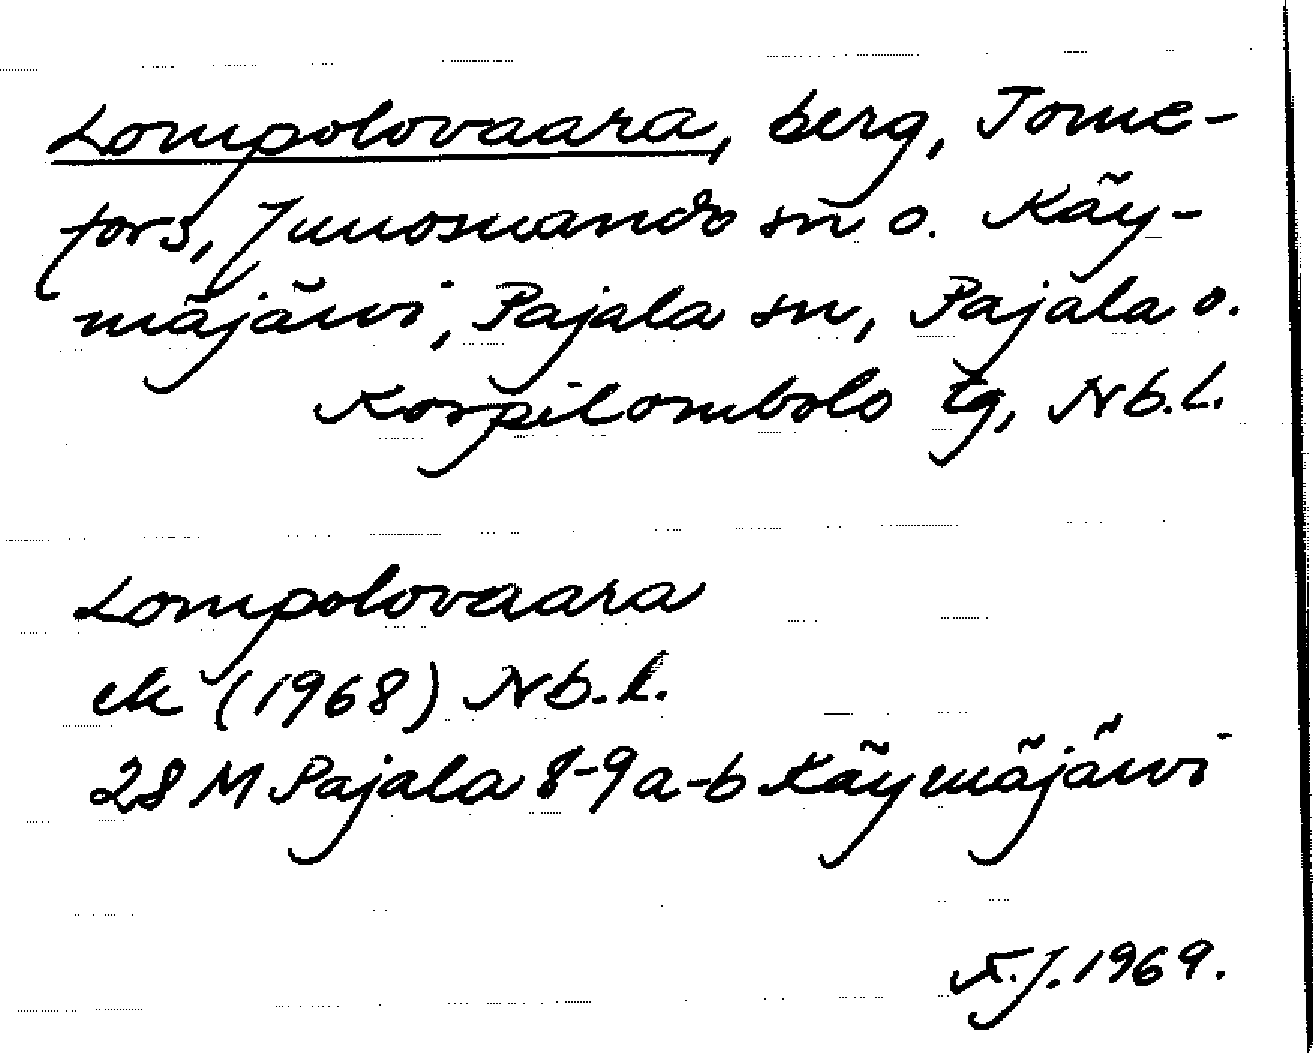 Lompolovaara, berg, Torne-
fors, Junosuando sn o. Käy-
mäjärvi, Pajala sn, Pajala o.
Korpilombolo tg, Nb.l.
Lompolovaara
ek (1968) Nb.l.
28 M Pajala 8-9a-b Käymäjärvi
K.J. 1969.